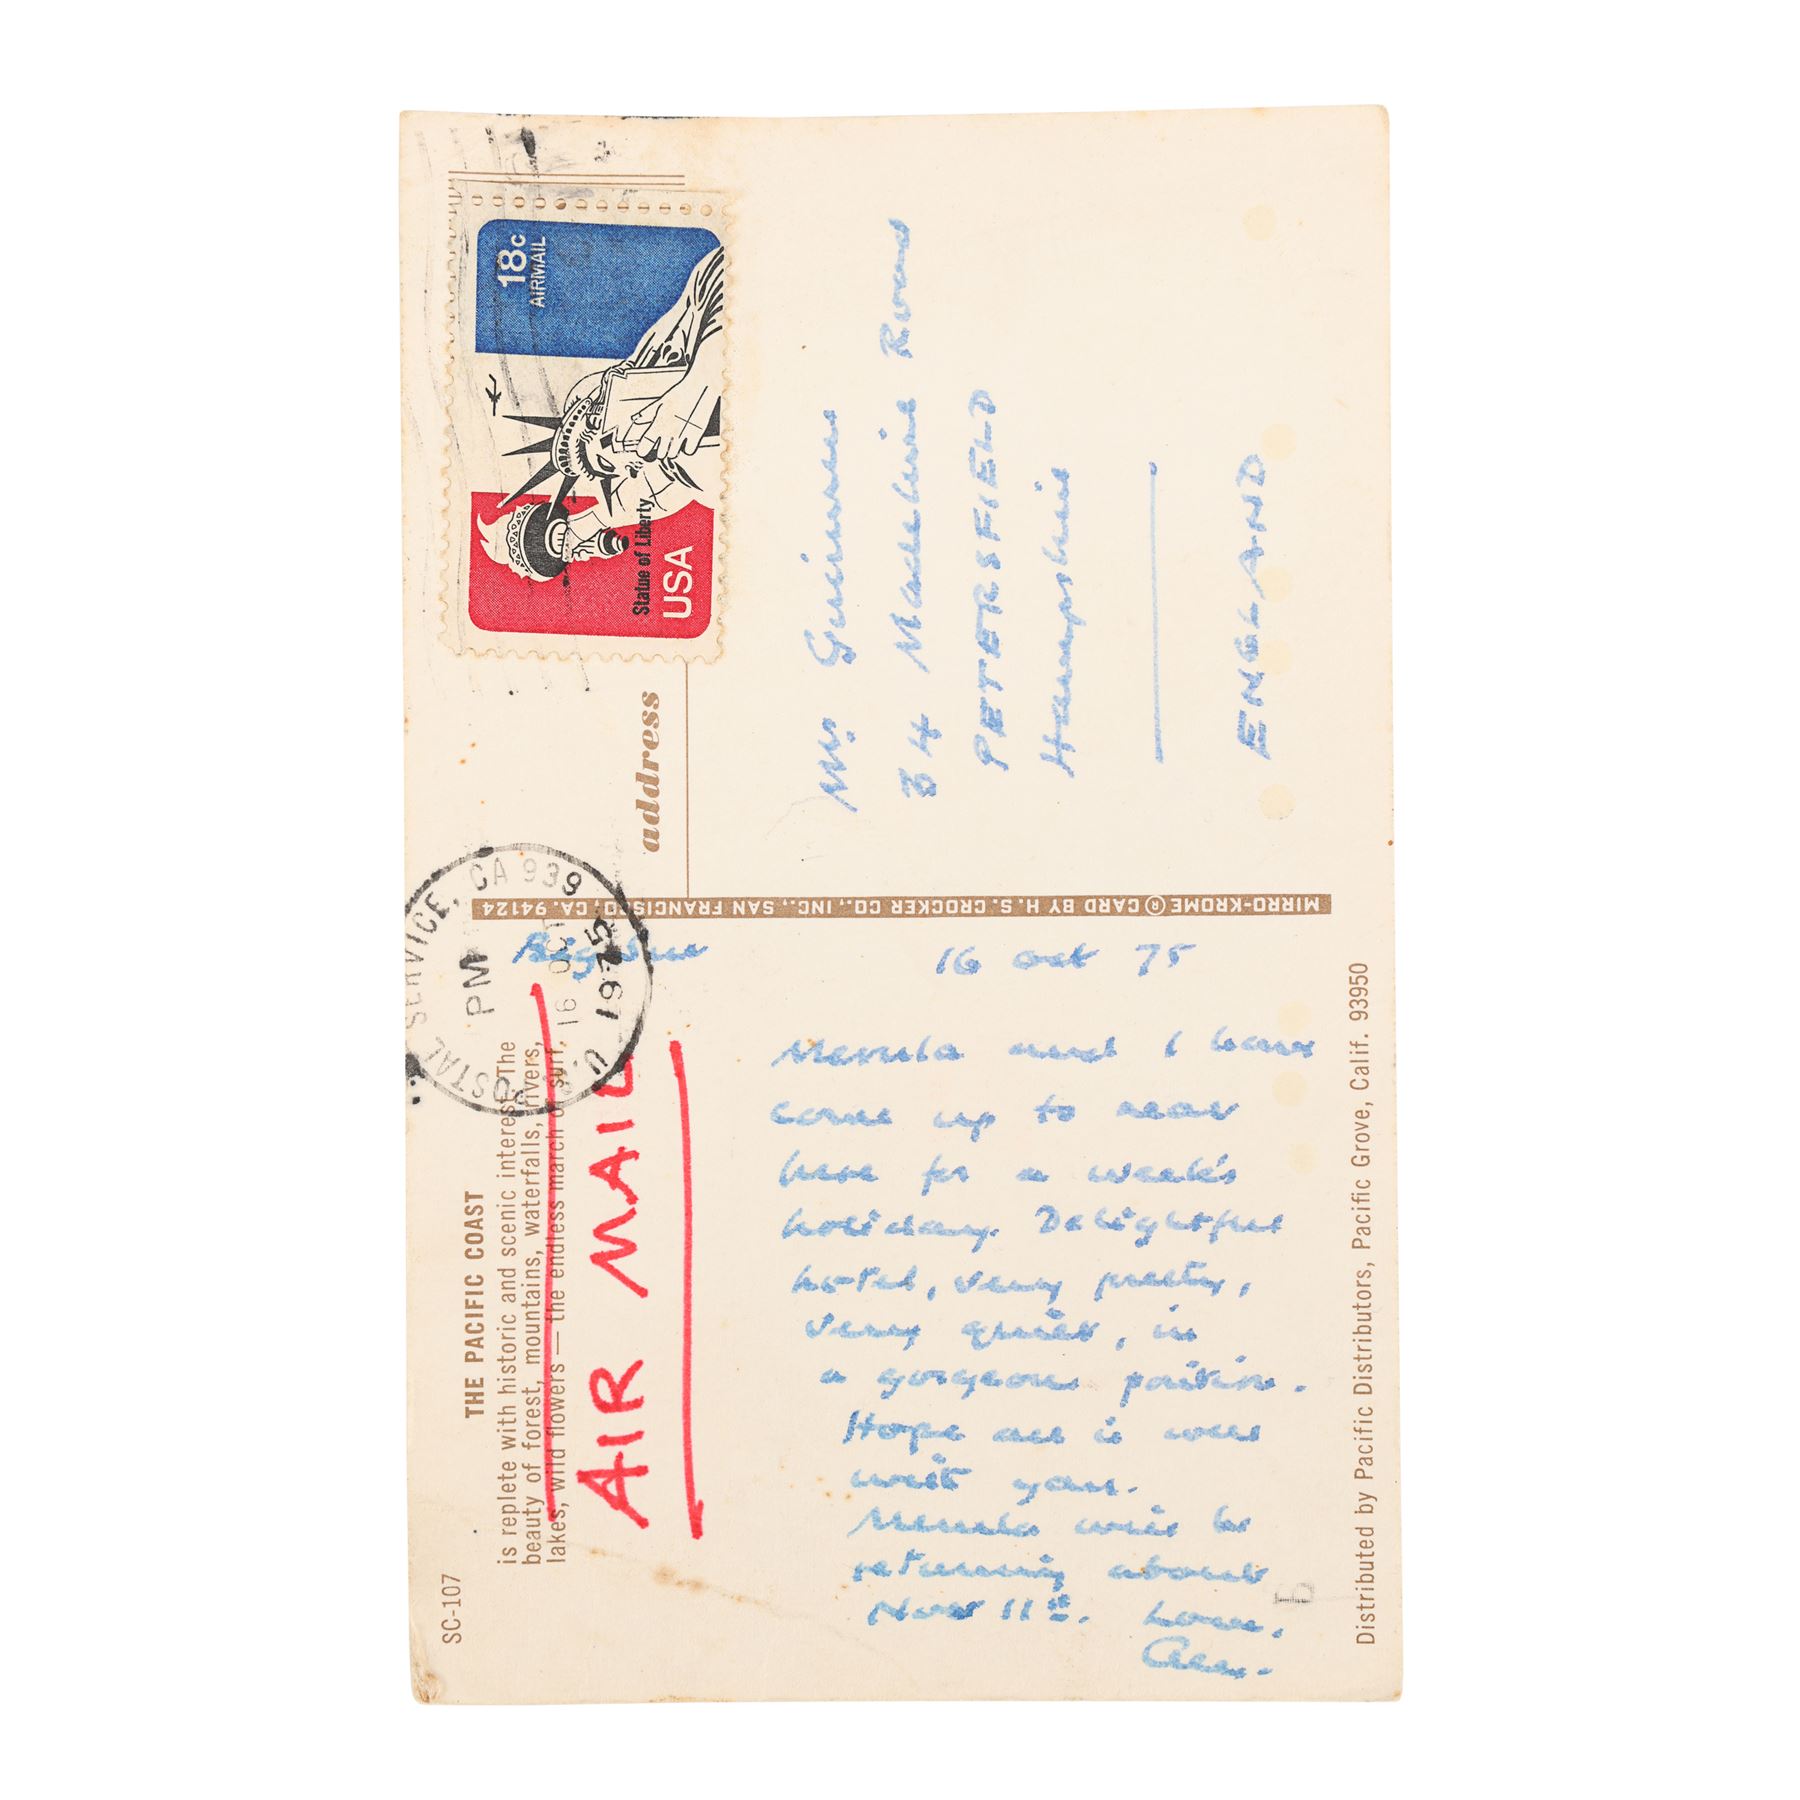 SC-107
THE PACIFIC COAST
is replete with historic and scenic interest. The
beauty of forest, mountains, waterfalls, rivers,
lakes, wild flowers — the endless march of surf.
AIR MAIL
Big Sur 16 Oct 75
Merula and I have
come up to near
here for a week's
holiday. Delightful
hotel, very pretty,
very quiet, in
a gorgeous position.
Hope all is well
with you.
Merula will be
returning about
Nov 11st. Love,
Alec.
Distributed by Pacific Distributors, Pacific Grove, Calif. 93950
MIRRO-KROME® CARD BY H.S. CROCKER CO., INC., SAN FRANCISCO, CA. 94124
U.S. POSTAL SERVICE, CA 939
PM
16 OCT
1975
18c
AIRMAIL
Statue of Liberty
USA
address
Mrs Guinness
34
PETERSFIELD
Hampshire
ENGLAND